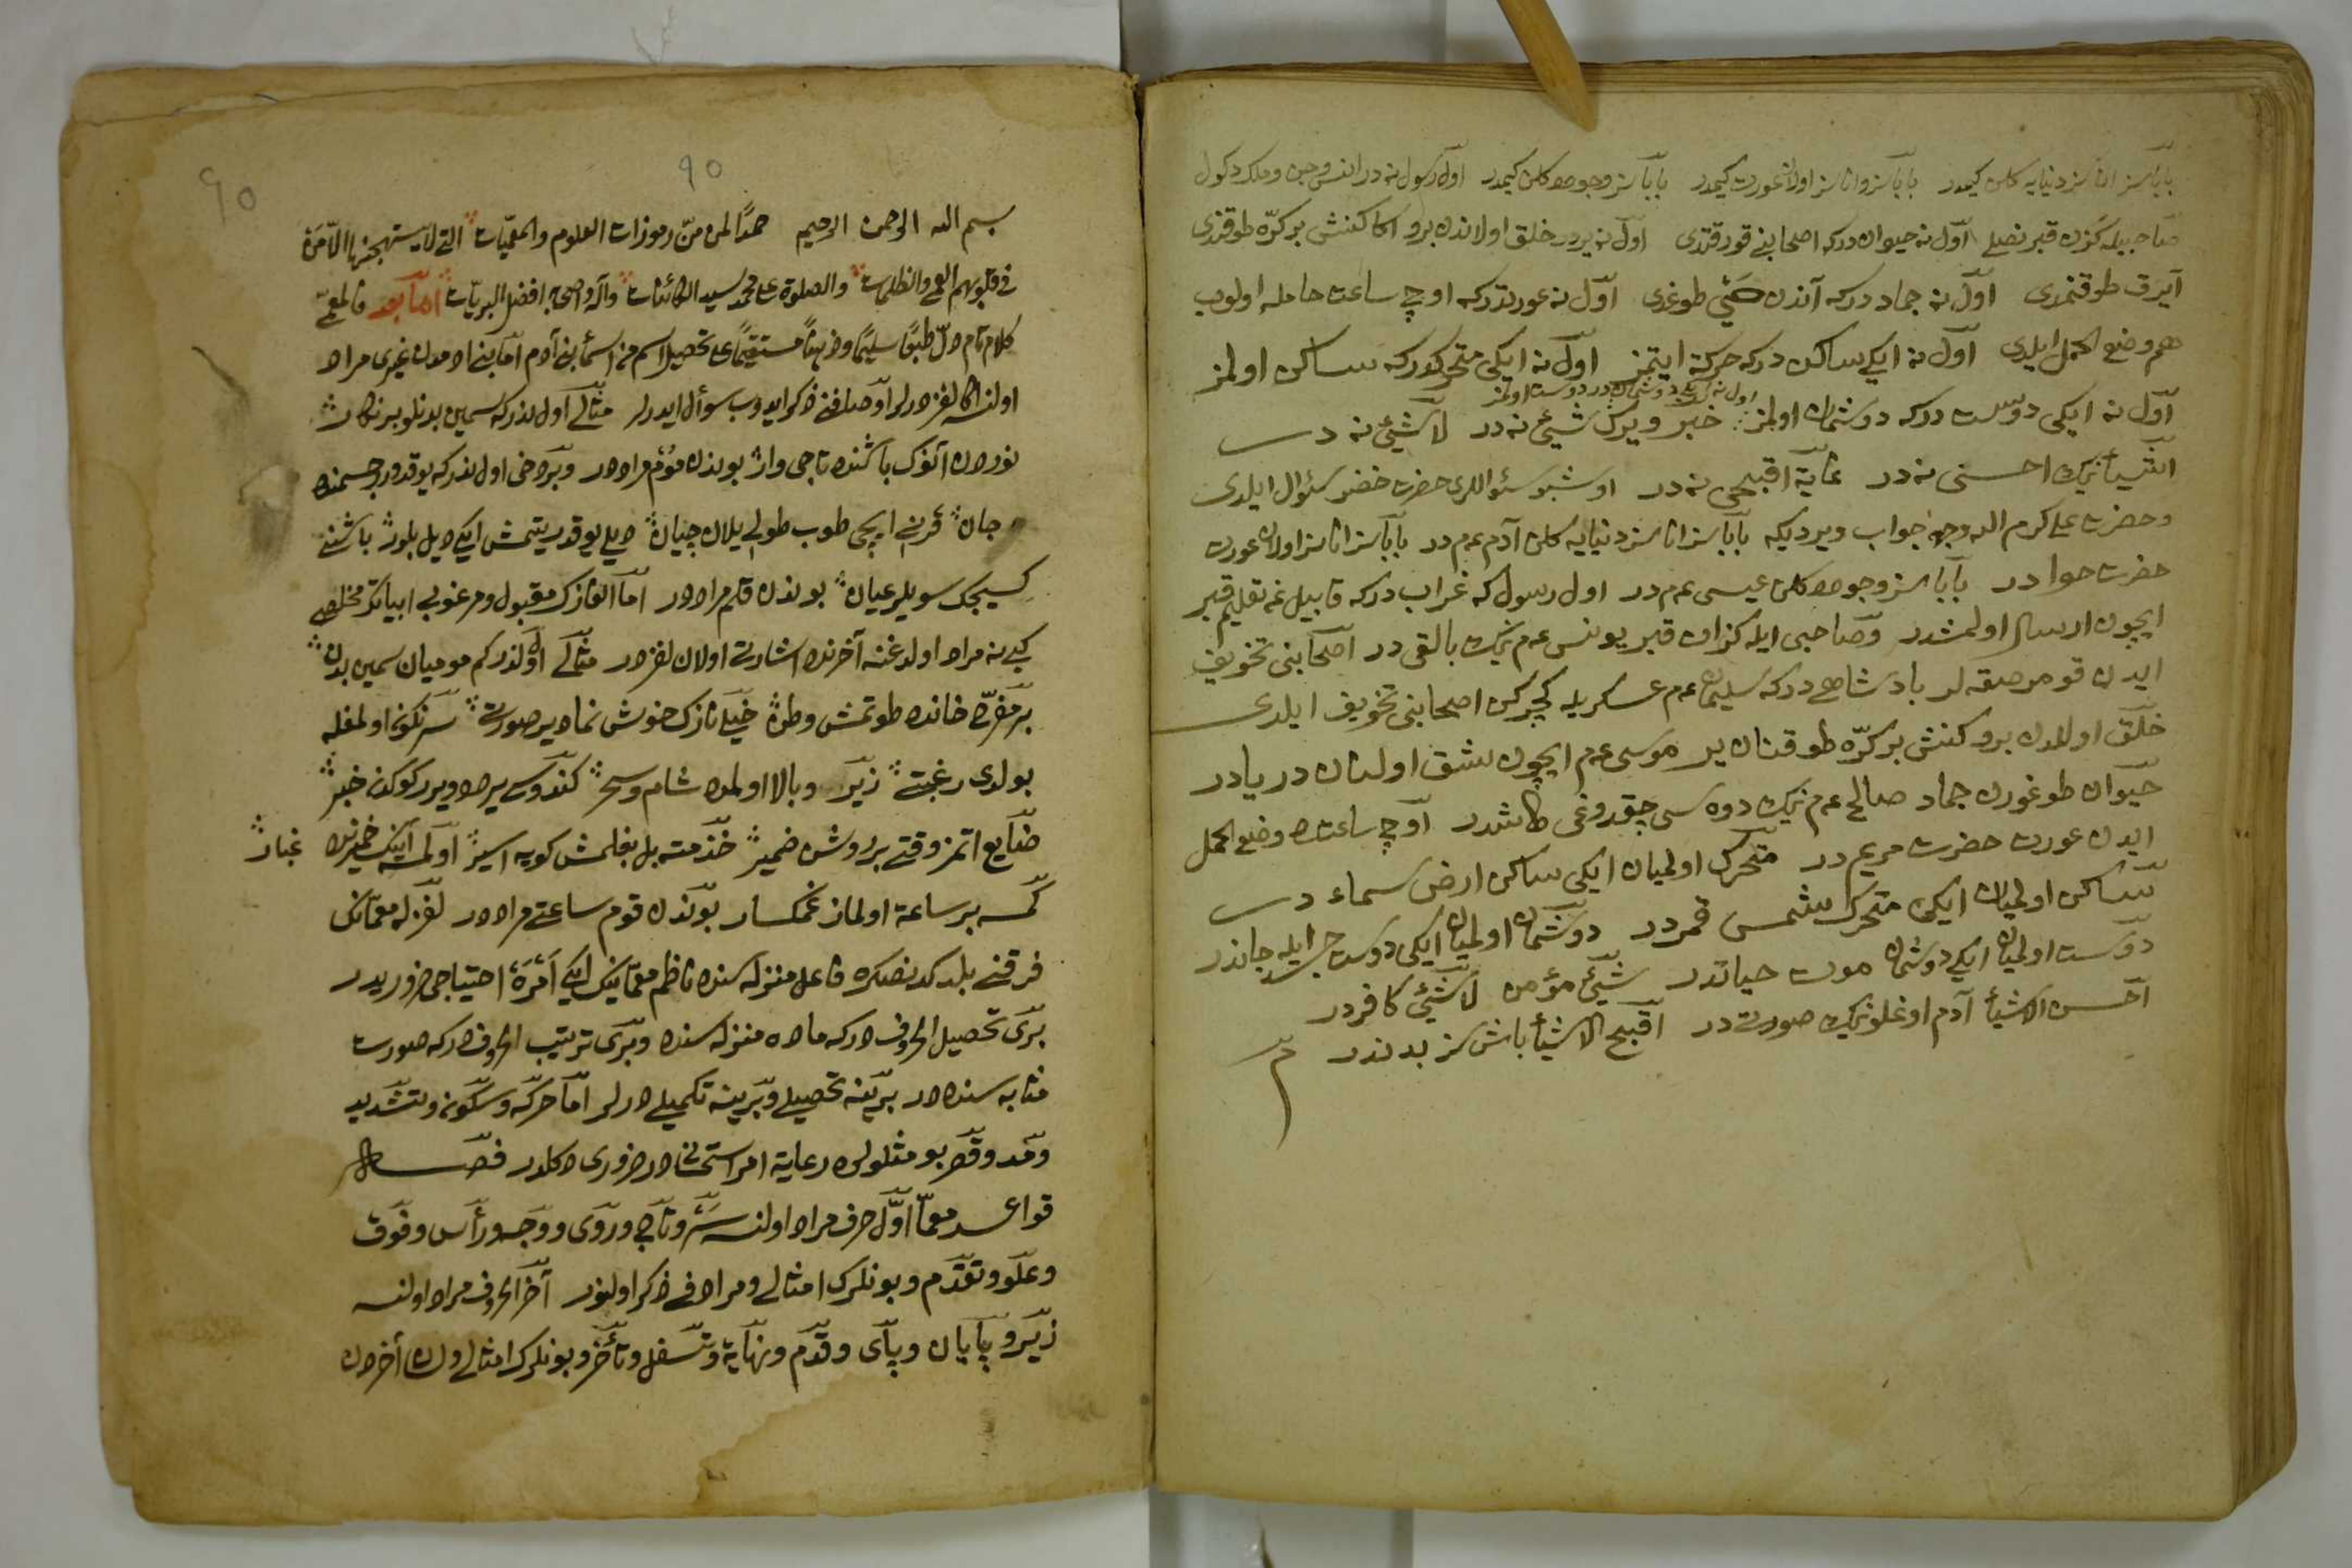 باباسز اناسز دنیایه کلن کیمدر باباسز و اناسز اولان عورت کیمدر باباسز وجوده کلن کیمدر اول رسول نه در انس و جن و ملک دکول
صاحبیله کزن قبر نصل اول نه حیوان درکه اصحابنی قورقتدی اول نه یردر خلق اولاندن برو اکا کنش بر کره طوقندی
آیرق طوقنمدی اول نه جماد درکه آندن حی طوغدی اول نه عورتدرکه اوچ ساعت حامله اولوب
هم وضع الحمل ایلدی اول نه ایکی ساکن درکه حرکة ایتمز اول نه ایکی متحرکدرکه ساکن اولمز
اول نه ایکی دوست درکه دوشمان اولمز اول نه ایکی دوشماندر دوست اولمز خبر ویرک شیئ نه در لا شیئ نه در
اشیأنک احسنی نه در غایة اقبحی نه در اوشبو سئواللری حضرت خضر سئوال ایلدی
وحضرت علی کرم الله وجهه جواب ویردیکه باباسز اناسز دنیایه کلن آدم عم در باباسز اناسز اولان عورت
حضرت حوا در باباسز وجوده کلن عیسی عم در اول رسول که غراب درکه قابیل غه تعلیم قبر
ایچون ارسال اولمشدر وصاحبی ایله کزان قبر یونس عم نیک بالقی در اصحابنی تخویف
ایدن قومرصقه لر بادشاهی درکه سلیمان عم عسکریله کچرکن اصحابنی تخویف ایلدی
خلق اولادن برو کنش بر کره طوقنان یر موسی عم ایچون شق اولنان دریادر
حیوان طوغورن جماد صالح عم نیک دوه سی چقدوغی طاشدر اوچ ساعتده وضع الحمل
ایدن عورت حضرت مریم در متحرک اولمیان ایکی ساکن ارض سماء در
ساکن اولمیان ایکی متحرک شمس قمردر دوشمان اولمیان ایکی دوست جسد ایله جاندر
دوست اولمیان ایکی دوشمان موت حیاتدر شیئ مؤمن لا شیئ کافردر
احسن الاشیأ آدم اوغلونیک صورتی در اقبح الاشیأ باش سز بدندر تم
٩٠
٩٠
بسم الله الرحمن الرحیم حمدا لمن من رموزات العلوم والمعمیات التی لا یستهجنها الا من
فی قلوبهم العمی والظلمات والصلوة علی محمد سید الکائنات وآله واصحابه افضل البریات اما بعد فالمعمی
کلام تام دل طبعا سلیما وذهنا مستقیما علی تحصیل اسم من اسمأ بنی آدم اما بنی ادمدن غیری مراد
اولنسه اکا لغز درلر اوصافنی ذکر ایدوب سوأل ایدرلر مثالی اول نذرکه سمین بدنلو بر نکار
نوردن آنوک باشنده تاجی وار بوندن موم مراددر وبر دخی اول نذرکه یوقدور جسمنده
جان قرنی ایچی طوب طولی یلان چیان دیلی یوقدر یتمش ایکی دیل بلور باشنی
کسیجک سویلر عیان بوندن قلم مراددر اما الغازک مقبول ومرغوبی ابیاتک مخلصی
کبی نه مراد اولدغنه آخرنده اشارت اولان لغزدر مثالی اولنذر کم مومیان سمین بدن
بر مقرح خانده طوتمش وطن خیلی نازک خوش نما دیر صورت سرنکون اولمغله
بولدی رغبتی زیر وبالا اولمده شام وسحر کندوسی یرده ویرر کوکدن خبر
ضایع اتمز وقتی بر روشن ضمیر خدمته بل بغلمش کویه اسیر اولمه آینک خمیرنده غبار
کمسه بر ساعة اولماز غمکسار بوندن قوم ساعتی مراددر لغزله معمانک
فرقنی بلدکدنصکره فاعل منزله سنده ناظم معمانیک ایکی امره احتیاجی ضروریدر
بری تحصیل الحروف درکه ماده منزله سنده وبری ترتیب الحروف درکه صورت
مثابه سنده در برینه تحصیلی وبرینه تکمیلی درلر اما حرکه وسکون وتشدید
ومد وقصر بو مثللولره رعایة امر استحسانیدر ضروری دکلدر فصل
قواعد معما اول حرف مراد اولنسه سر وتاج وروی ووجه ورأس وفوق
وعلو وتقدم وبونلرک امثالی ومرادفی ذکر اولنور آخر الحروف مراد اولنسه
زیر وپایان وپای وقدم ونهایة وتسفل وتأخر وبونلرک امثالی